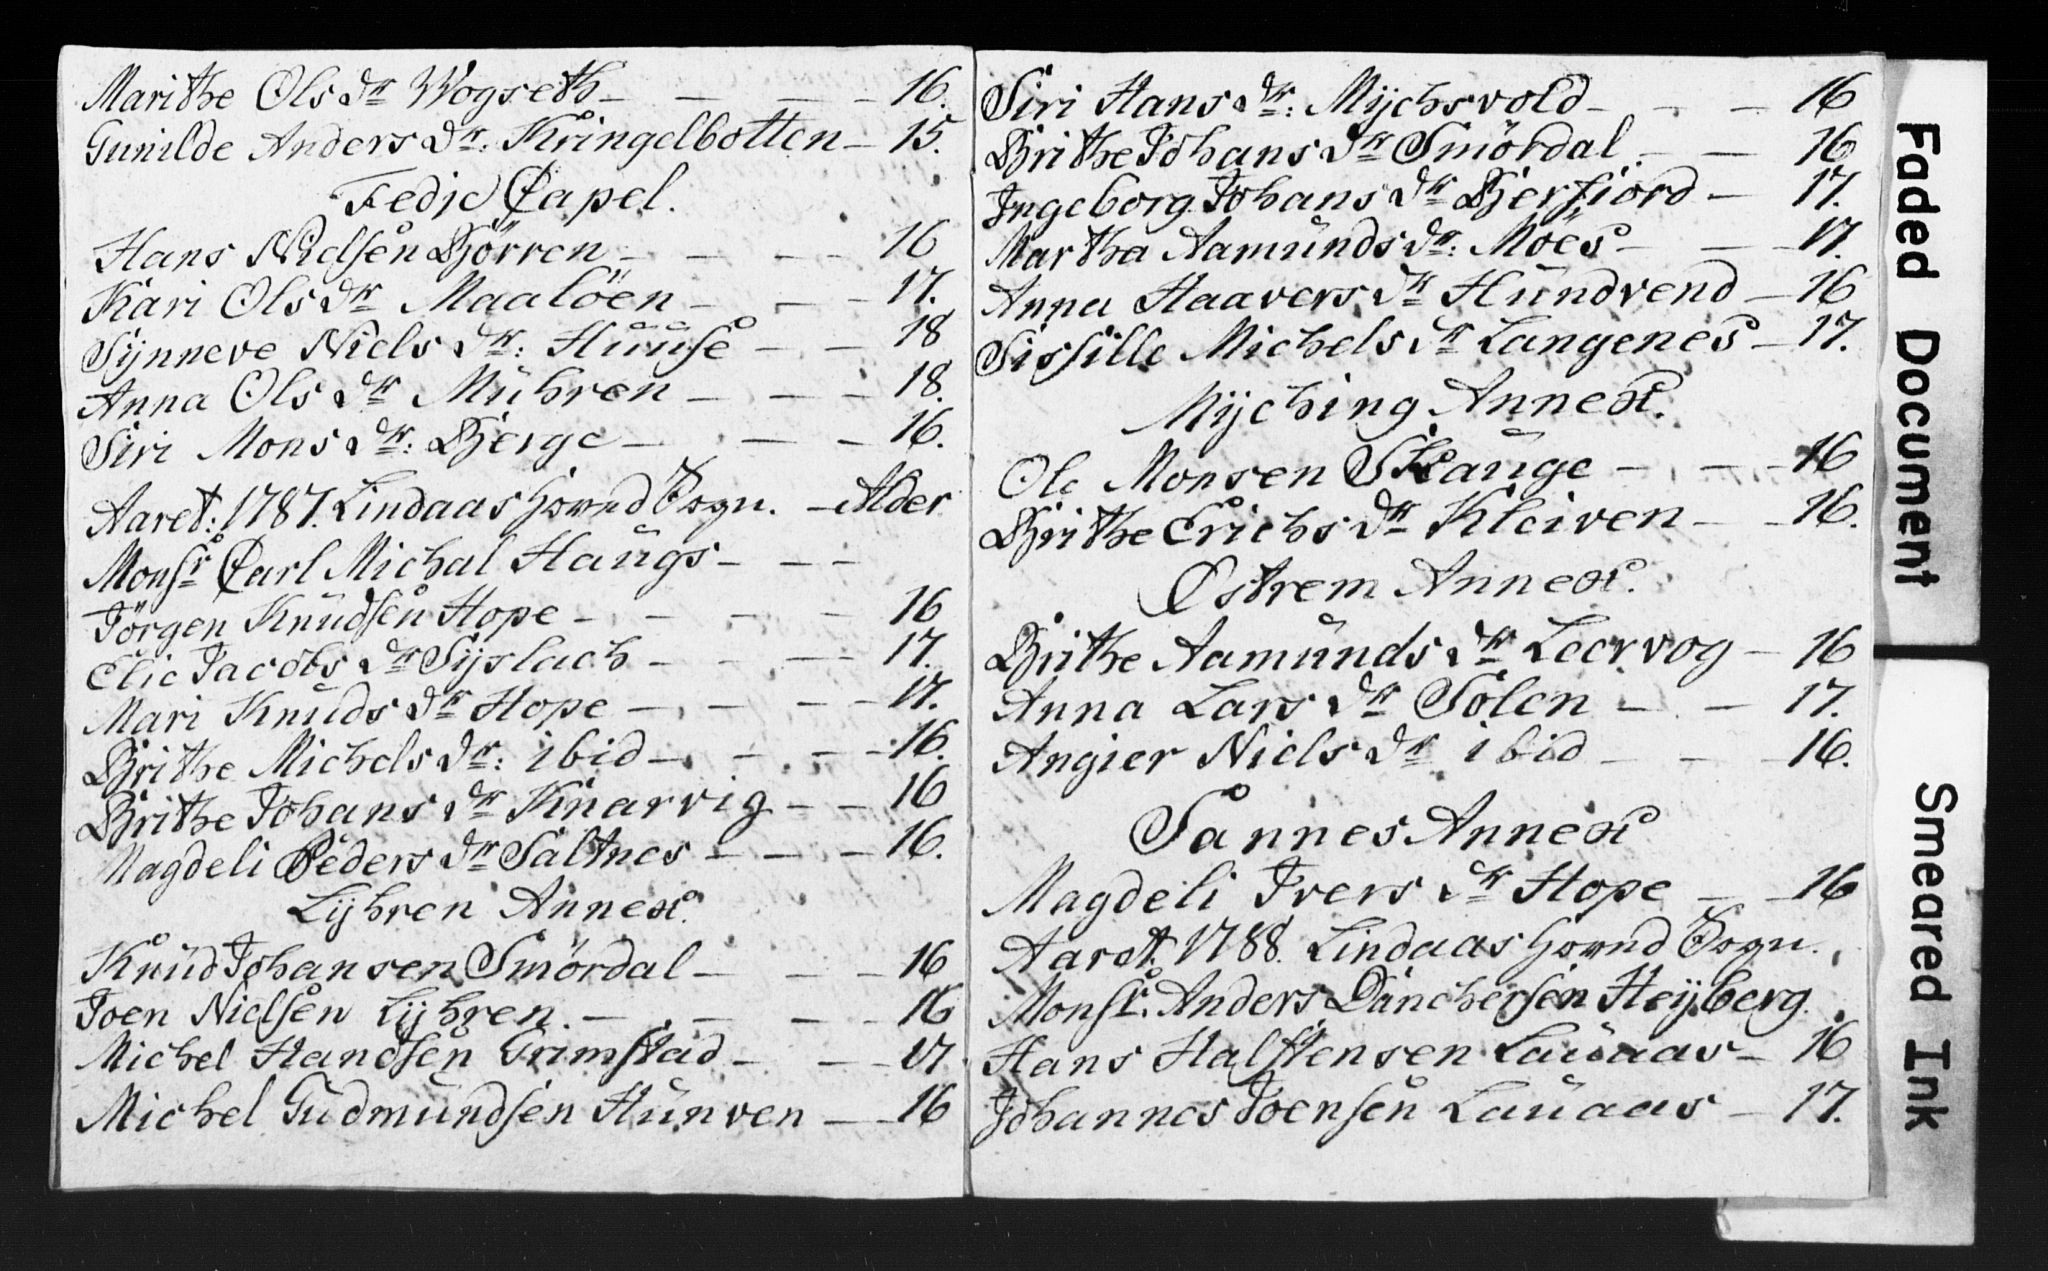 Marithe Ols dr Wogseth — — — — 16.
Gunilde Anders dr: Kringelbotten — 15.
Fedje Capel.
Hans Nielsen Börren — — — — 16
Kari Ols dr Maalöen — — — 17.
Synneve Niels dr: Huuse — — 18
Anna Ols dr Mühren — — — 18.
Siri Mons dr: Bjerge — — — 16.
Aaret: 1787. Lindaas Hovud Sogn. — Alder
Monsr Carl Michal Haugs — — —
Jörgen Knudsen Hope — — — — 16
Elie Jacobs dr Syslach — — — 17.
Mari Knuds dr Hope — — — — 17.
Brithe Michels dr: ibid — — — — 16.
Brithe Johans dr Knarvig — — 16
Magdeli Peders dr Saltnes — — — 16.
Lyhren Annex.
Knud Johansen Smördal — — — 16
Joen Nielsen Lyhren. — — — — 16
Michel Handsen Grimstad — — — 17
Michel Gudmundsen Hunven — — 16
Siri Hans dr: Mychsvold — — — 16
Brithe Johans dr Smördal. — — 16
Ingeborg Johans dr Bjerfiord — 17.
Martha Aamunds dr: Moes — — — 17.
Anna Haavers dr Hundvend — 16
Sissille Michels dr Langenes — 17.
Myching Annex.
Ole Monsen Skauge — — — 16
Brithe Erichs dr Kleiven — — 16.
Østrem Annex.
Brithe Aamunds dr Leervog — 16
Anna Lars dr Solen — — 17.
Angier Niels dr ibid — — — 16.
Sannes Annex
Magdeli Ivers dr Hope — — 16
Aaret. 1788. Lindaas Hovud Sogn.
Monsr: Anders Danchersen Heyberg.
Hans Halstensen Lauaas — 16
Johannes Joensen Lauaas — 17.
Faded Document
Smeared Ink